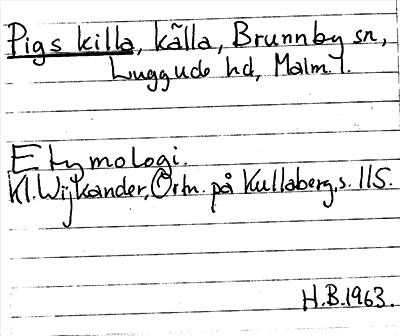 Pigs killa, källa, Brunnby sn,
Luggude hd, Malm. l.
Etymologi.
Kl. Wijkander, Ortn. på Kullaberg, s. 115.
H.B. 1963.